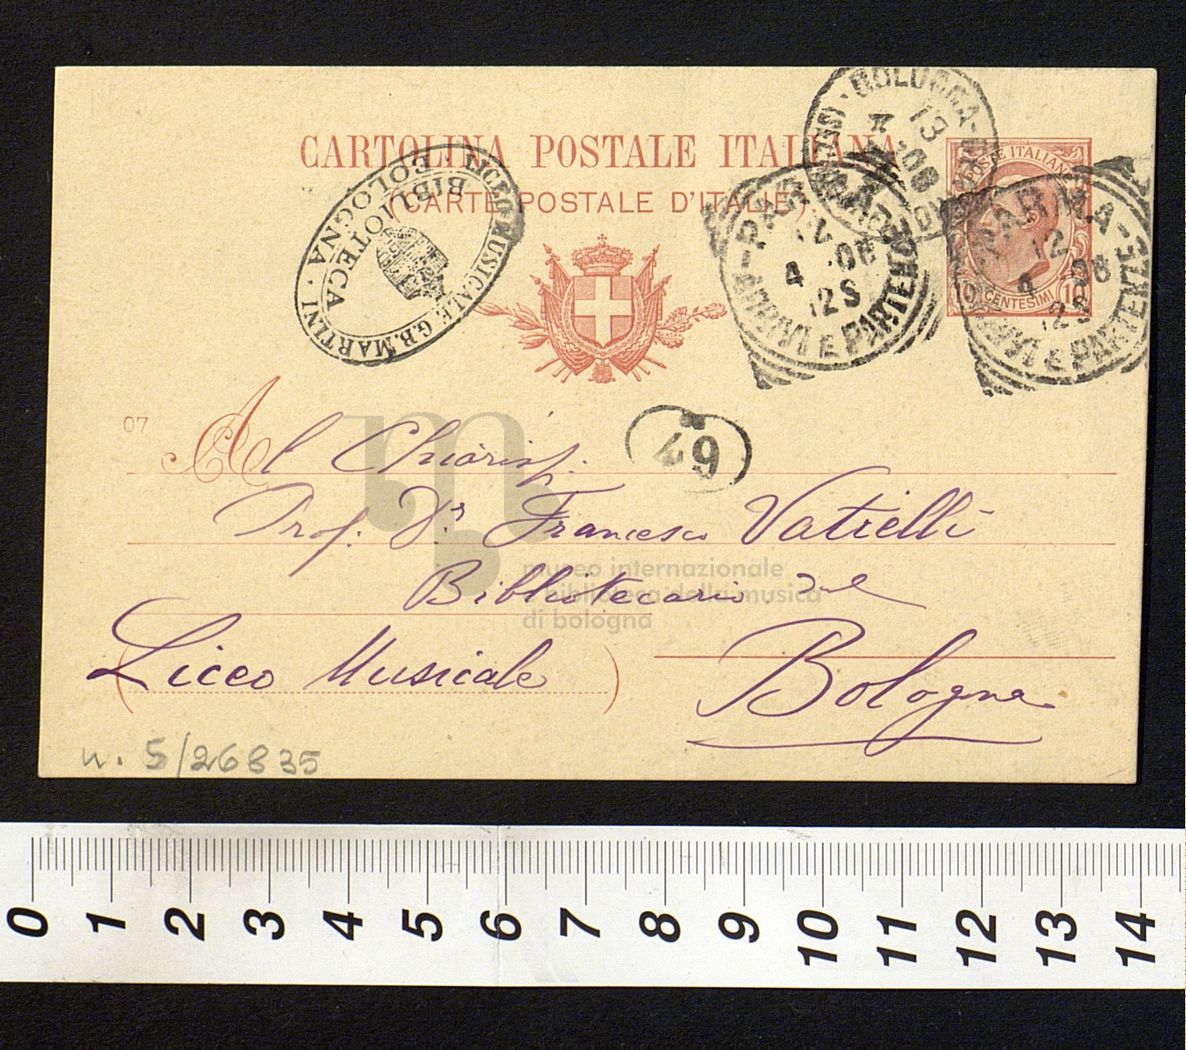 CARTOLINA POSTALE ITALIANA
(CARTE POSTALE D'ITALIE)
LICEO MUSICALE G.B. MARTINI · BOLOGNA ·
BIBLIOTECA
BOLOGNA
13
4
08
PARMA
ARRIVI E PARTENZE
IV 08
4
12S
PARMA
ARRIVI E PARTENZE
IV 08
4
12S
POSTE ITALIANE
10 CENTESIMI 10
07
49
Al Chiariss.
Prof. Dr Francesco Vatielli
Bibliotecario
Liceo Musicale
Bologna
museo internazionale
e biblioteca della musica
di bologna
n. 5/26835
0 1 2 3 4 5 6 7 8 9 10 11 12 13 14